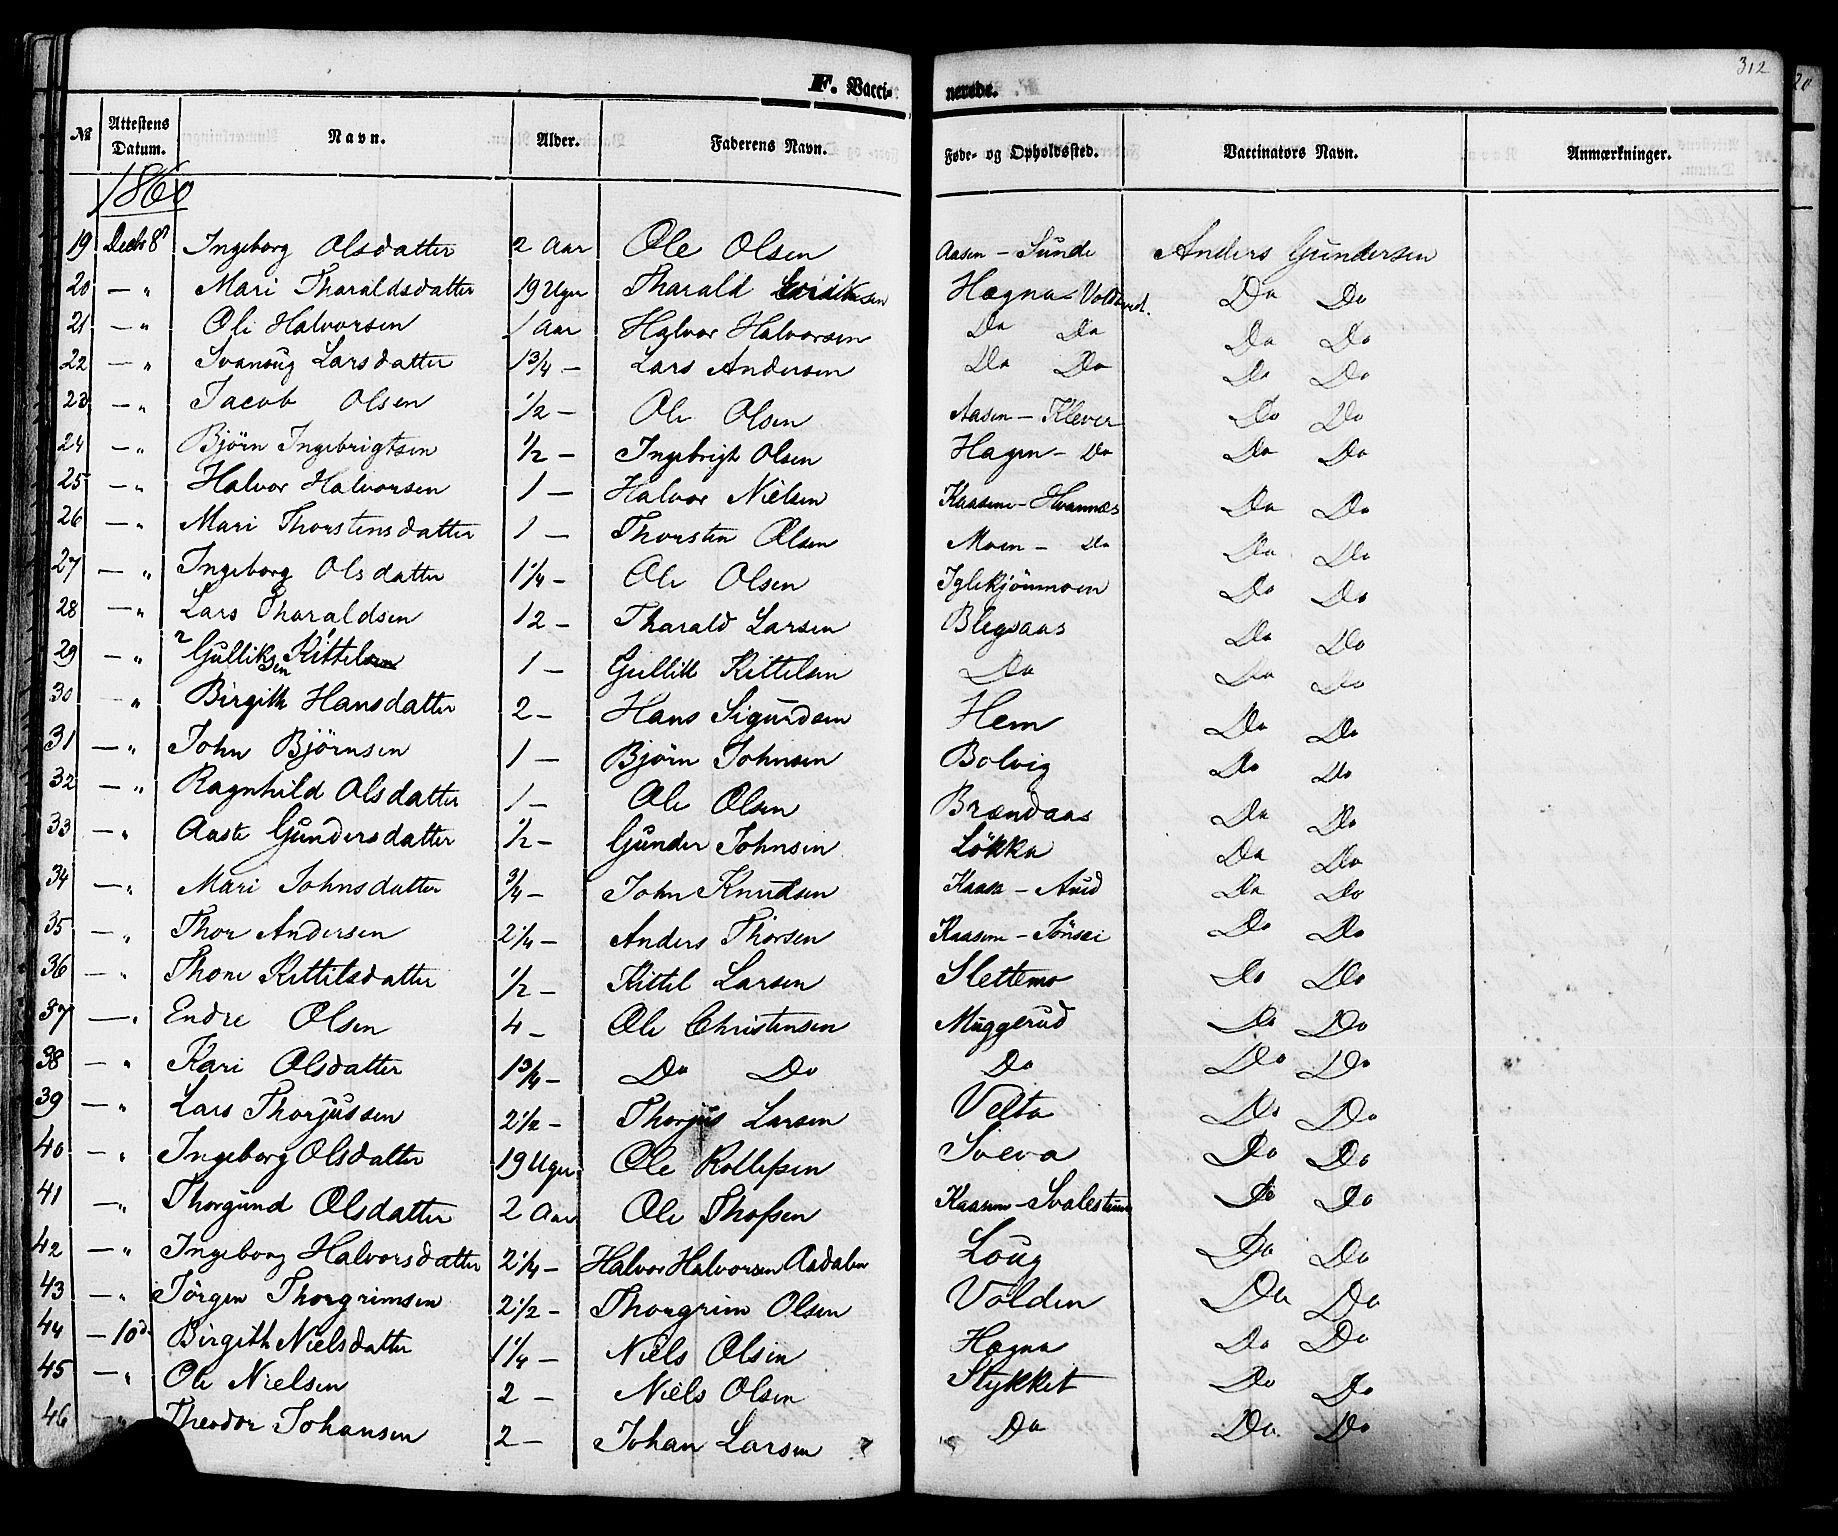 312
F. Vacci- nerede.
№ Attestens Datum. Navn. Alder. Faderens Navn. Føde- og Opholdssted. Vaccinators Navn. Anmærkninger.
1860
19 Decbr 8de Ingeborg Olsdatter 2 Aar Ole Olsen Aasen - Sunde Anders Gundersen
20 — " Mari Tharaldsdatter 19 Uger Tharald Hægna - Do Do
21 — " Ole Halvorsen 1 Aar Halvor Halvorsen Do Do Do Do
22 — " Svanaug Larsdatter 1 3/4 — Lars Andersen Do Do Do Do
23 — " Jacob Olsen 1/2 — Ole Olsen Aasen - Klever Do Do
24 — " Bjørn Ingebrigtsen 1/2 — Ingebrigt Olsen Hagen - Do Do Do
25 — " Halvor Halvorsen 1 — Halvor Nielsen Kaasene - Hvamnæs Do Do
26 — " Mari Thorstensdatter 1 — Thorsten Olsen Moen - Do Do Do
27 — " Ingeborg Olsdatter 1 1/4 — Ole Olsen Iglekjönmoen Do Do
28 — " Lars Tharaldsen 12 — Tharald Larsen Blegsaas Do Do
29 — " 2 Gulliksen 1 Kittelsen 1 — Gullik Kittelsen Do Do Do
30 — " Birgith Hansdatter 2 — Hans Sigurdsen Hem Do Do
31 — " John Bjørnsen 1 — Bjørn Johnsen Bolvig Do Do
32 — " Ragnhild Olsdatter 1 — Ole Olsen Brændaas Do Do
33 — " Aaste Gundersdatter 1/2 — Gunder Johnsen Løkka Do Do
34 — " Mari Johnsdatter 3/4 — John Knudsen Kaasa - Aud Do Do
35 — " Thor Andersen 2 1/4 — Anders Thorsen Kaasene - Do Do
36 — " Thone Kittilsdatter 1/2 — Kittil Larsen Slettemo Do Do
37 — " Endre Olsen 4 — Ole Christensen Muggerud Do Do
38 — " Kari Olsdatter 1 3/4 — Do Do Do Do Do
39 — " Lars Thorjussen 2 1/2 — Thorjus Larsen Velta Do Do
40 — " Ingeborg Olsdatter 19 Uger Ole Rollefsen Sveva Do Do
41 — " Thorgund Olsdatter 2 Aar Ole Thofsen Kaasene - Do Do
42 — " Ingeborg Halvorsdatter 2 1/4 — Halvor Halvorsen Aadalen Loug Do Do
43 — " Jørgen Thorgrimsen 2 1/2 — Thorgrim Olsen Volden Do Do
44 — 10de Birgith Nielsdatter 1 1/4 — Niels Olsen Hægna Do Do
45 — " Ole Nielsen 2 — Niels Olsen Stykket Do Do
46 — " Theodor Johansen 2 — Johan Larsen Do Do Do